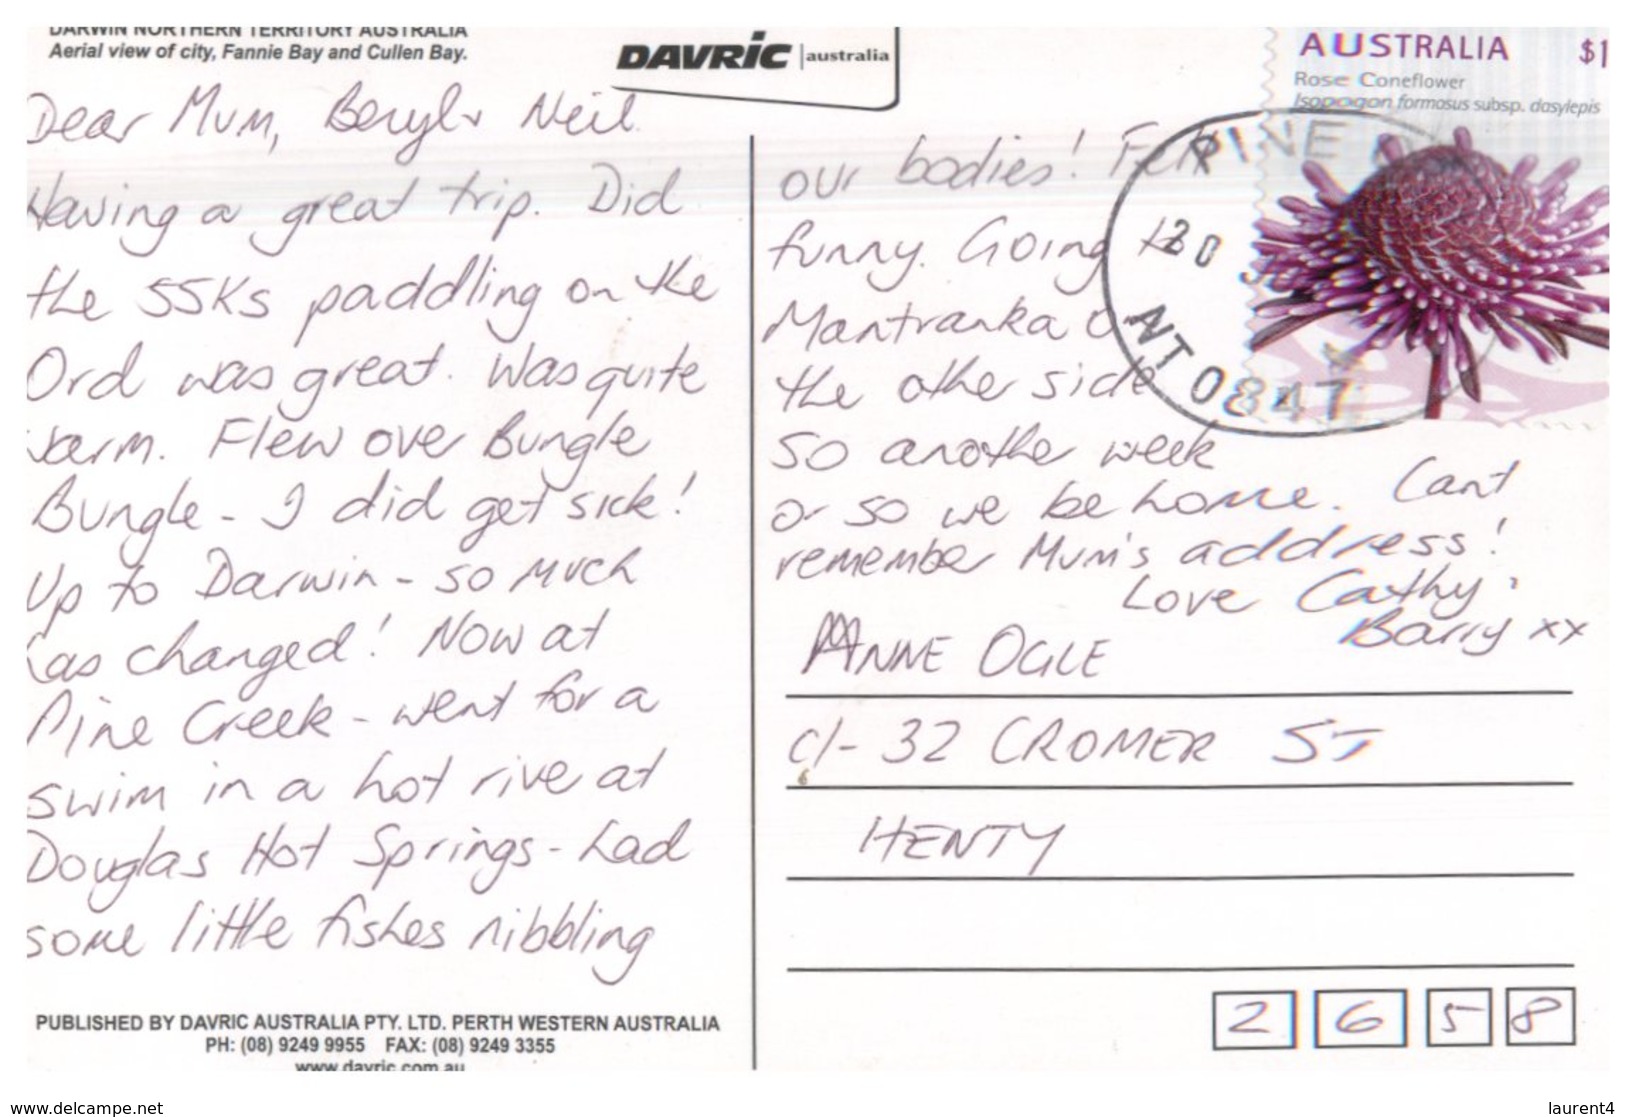 DARWIN NORTHERN TERRITORY AUSTRALIA
Aerial view of city, Fannie Bay and Cullen Bay.
DAVRIC australia
Dear Mum, Beryl & Neil
Having a great trip. Did
the 55Ks paddling on the
Ord was great. Was quite
warm. Flew over Bungle
Bungle - I did get sick!
Up to Darwin - so much
has changed! Now at
Pine Creek - went for a
swim in a hot rive at
Douglas Hot Springs - had
some little fishes nibbling
PUBLISHED BY DAVRIC AUSTRALIA PTY. LTD. PERTH WESTERN AUSTRALIA
PH: (08) 9249 9955 FAX: (08) 9249 3355
www.davric.com.au
AUSTRALIA $1
Rose Coneflower
Isopogon formosus subsp. dasylepis
PINE
20
NT 0847
our bodies! Felt
funny. Going to
Mantranka
the other side
so another week
or so we be home. Cant
remember Mum's address!
Love Cathy &
Barry xx
ANNE OGLE
c/- 32 CROMER ST
HENTY
2 6 5 8
www.delcampe.net
laurent4